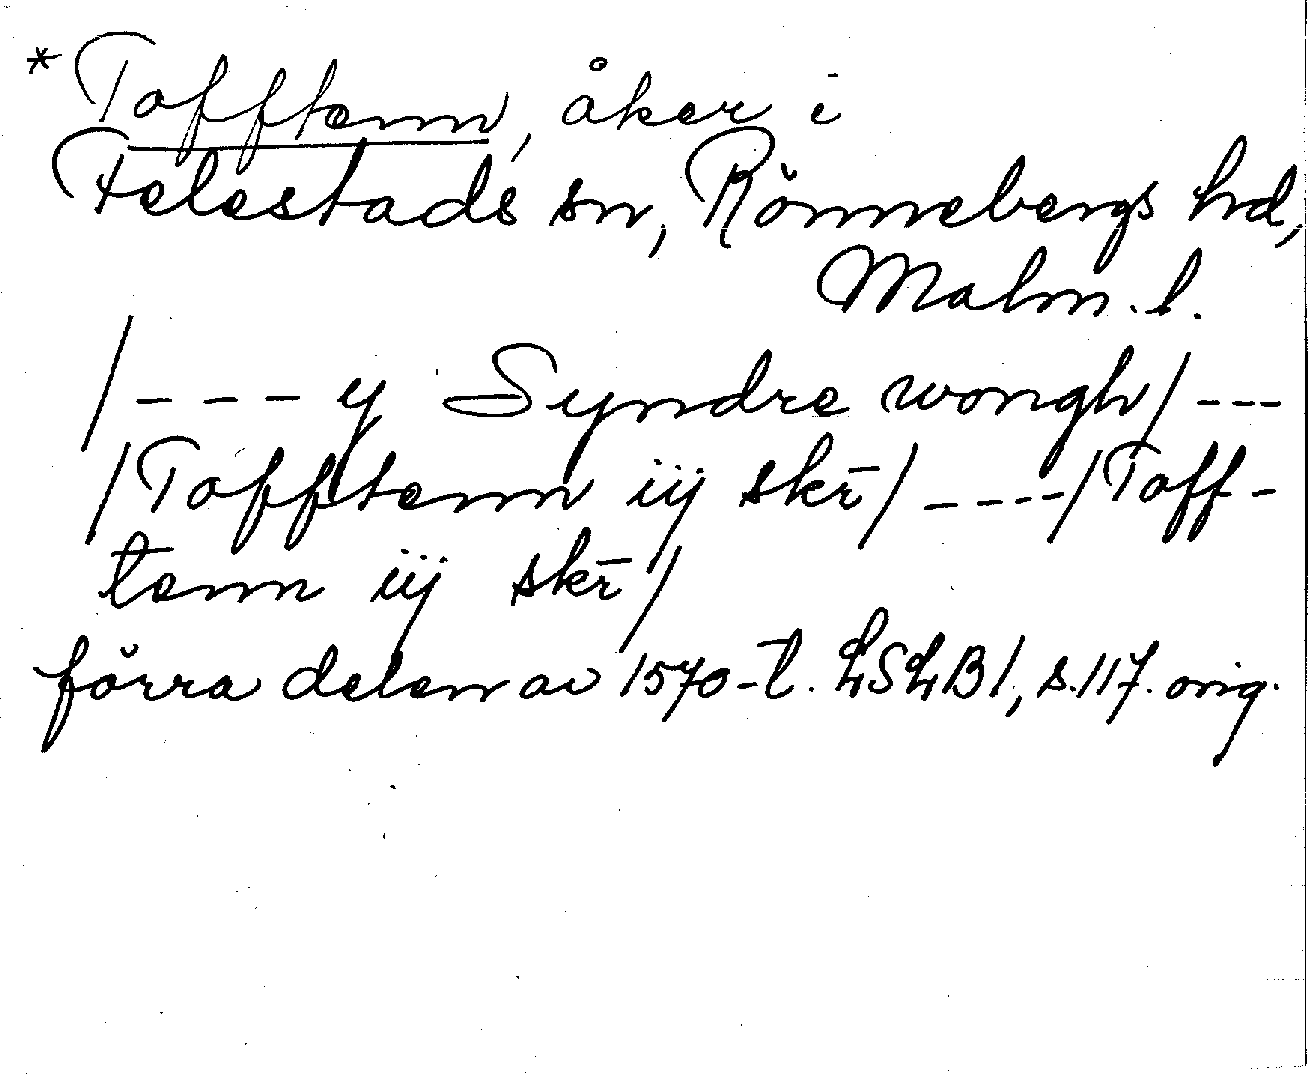 *Tofftenn, åker i
Felestads sn, Rönnebergs hd,
Malm. l.
/--- y Syndre wongh/---
/Tofftenn iij skr̄/----/Toff-
tenn iij skr̄/
förra delen av 1570-t. LSLB1, s.117. orig.